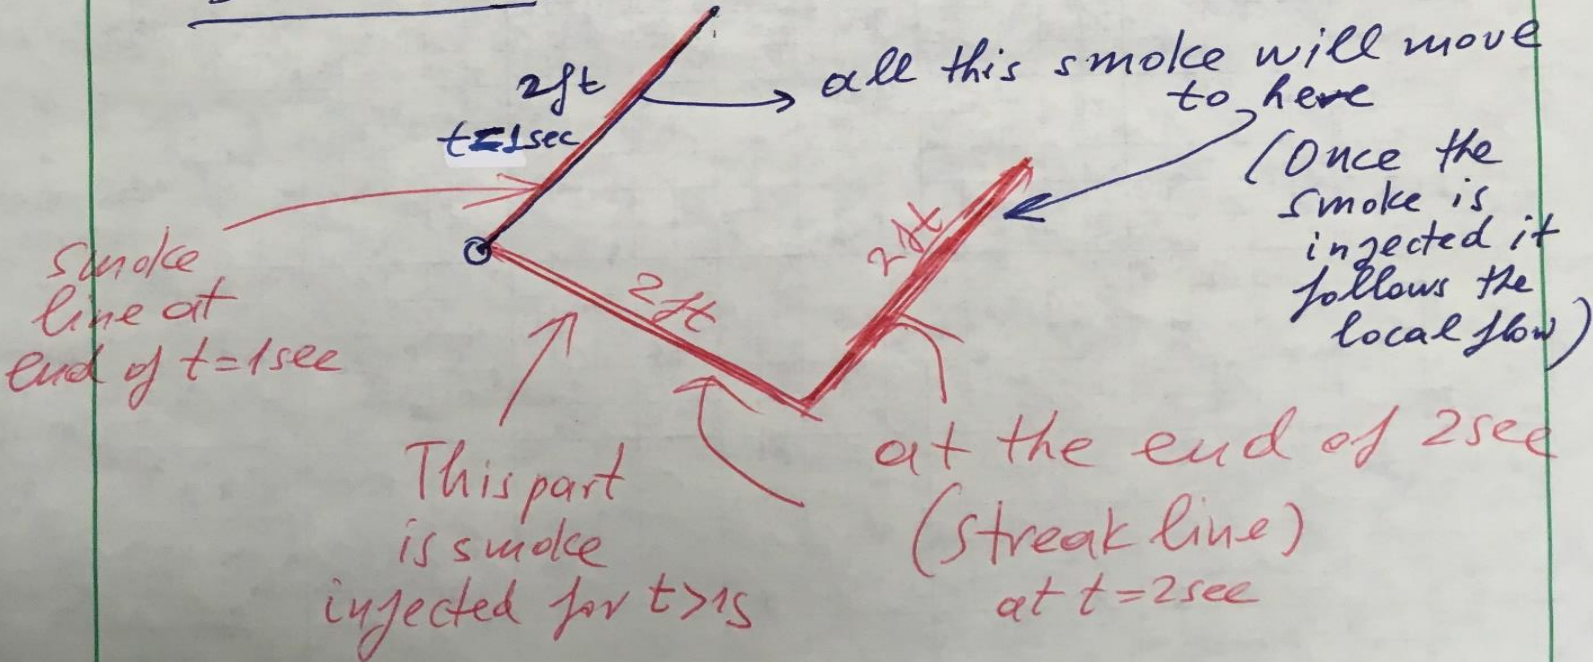 2ft
t=1sec
all this smoke will move
to here
(Once the
smoke is
injected it
follows the
local flow)
smoke
line at
end of t=1sec
2ft
2ft
This part
is smoke
injected for t>1s
at the end of 2sec
(streak line)
at t=2sec